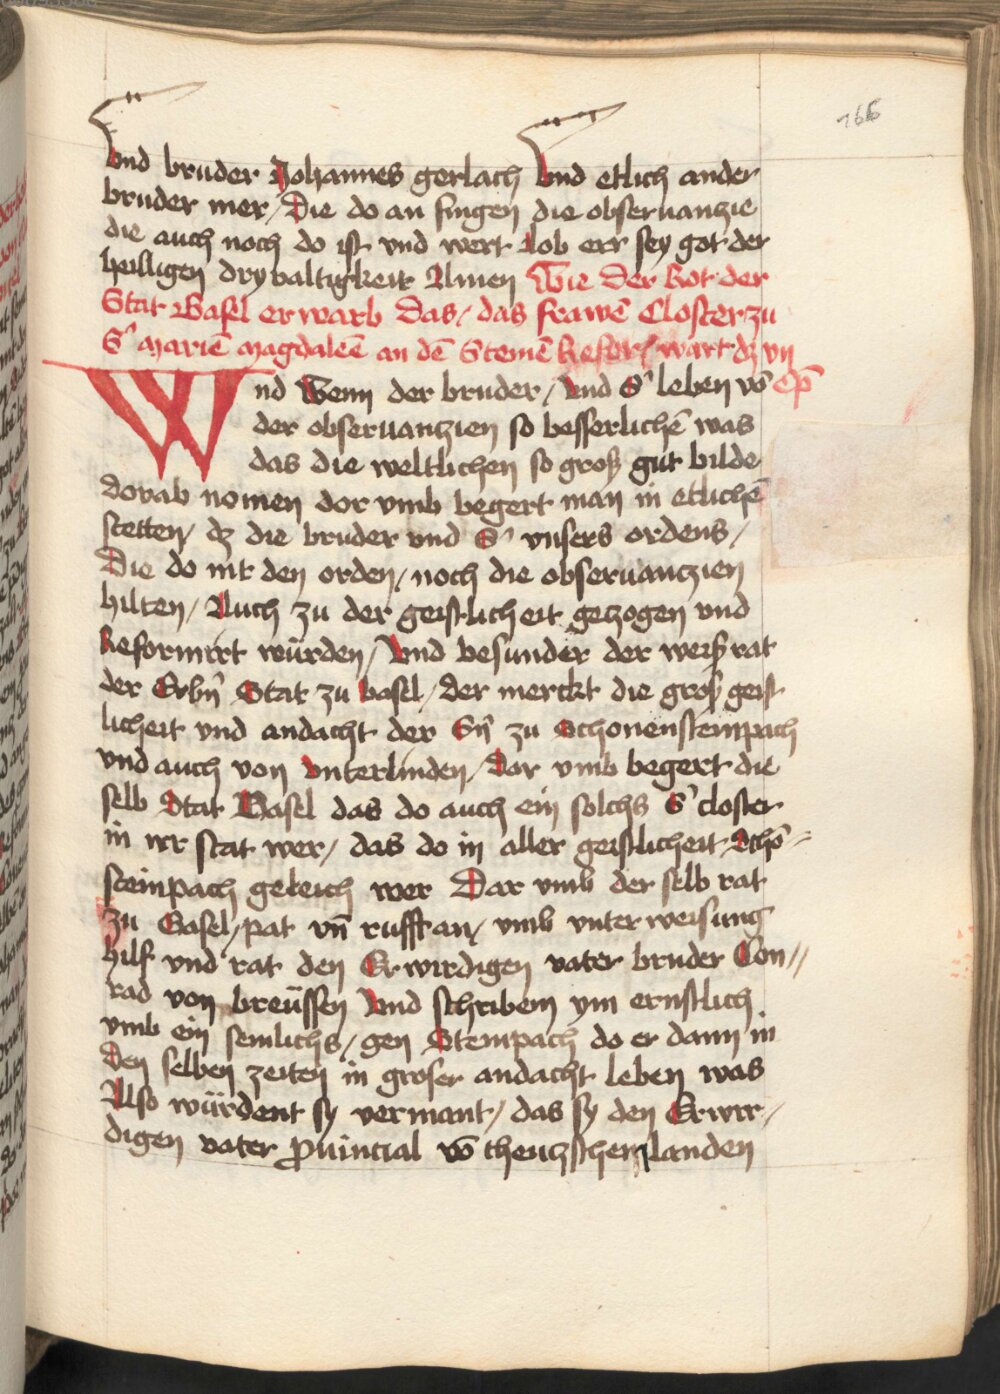 166
Vnd bruder Johannes gerlach Vnd etlich ander
bruder mer / Die do an fingen die obseruanczie
die auch noch do ist vnd wert Lob eer sey got der
heilligen dryualtigkeit Amen Wie der Rot der
Stat Basel erwarb das / das frawē Closter zu
Sͬ Mariē magdaleē an dē Steinē Refor wart dz vij
cͦp̄
Wnd Wenn der bruder / Vnd Sͬ leben vō
der obseruanczien so besserlichē was
das die weltlichen so groß gut bilde
dorab nomen dor vmb begert man in etlichē
stetten / dz die bruder vnd Sͬ vnsers ordens /
Die do nit den orden / noch die obseruanczien
hilten / Auch zu der geistlicheit gezogen vnd
Reformirt würden / Vnd besunder der weiß rat
der Erbn̄ Stat zu basel / der merckt die groß geist
licheit vnd andacht der Sn̄ zu Schonensteinpach
vnd auch von Vnterlinden / Dar vmb begert die
selb Stat Basel das do auch ein solchs Sͬ closter
in irr stat wer / das do in aller geistlicheit Schō=
steinpach geleich wer Dar vmb der selb rat
zu Basel / pat vn̄ rufft an / vmb vnter weisung
hilf vnd rat den Erwirdigen vater bruder Con//
rad von breüssen Vnd schribem ym ernstlich
vmb ein semlichs / gen Steinpach do er dann in
den selben zeiten in groser andacht leben was
Also würdent sy vermant / das sy den Erwir /
digen vater prouincial vō theuczschen landen